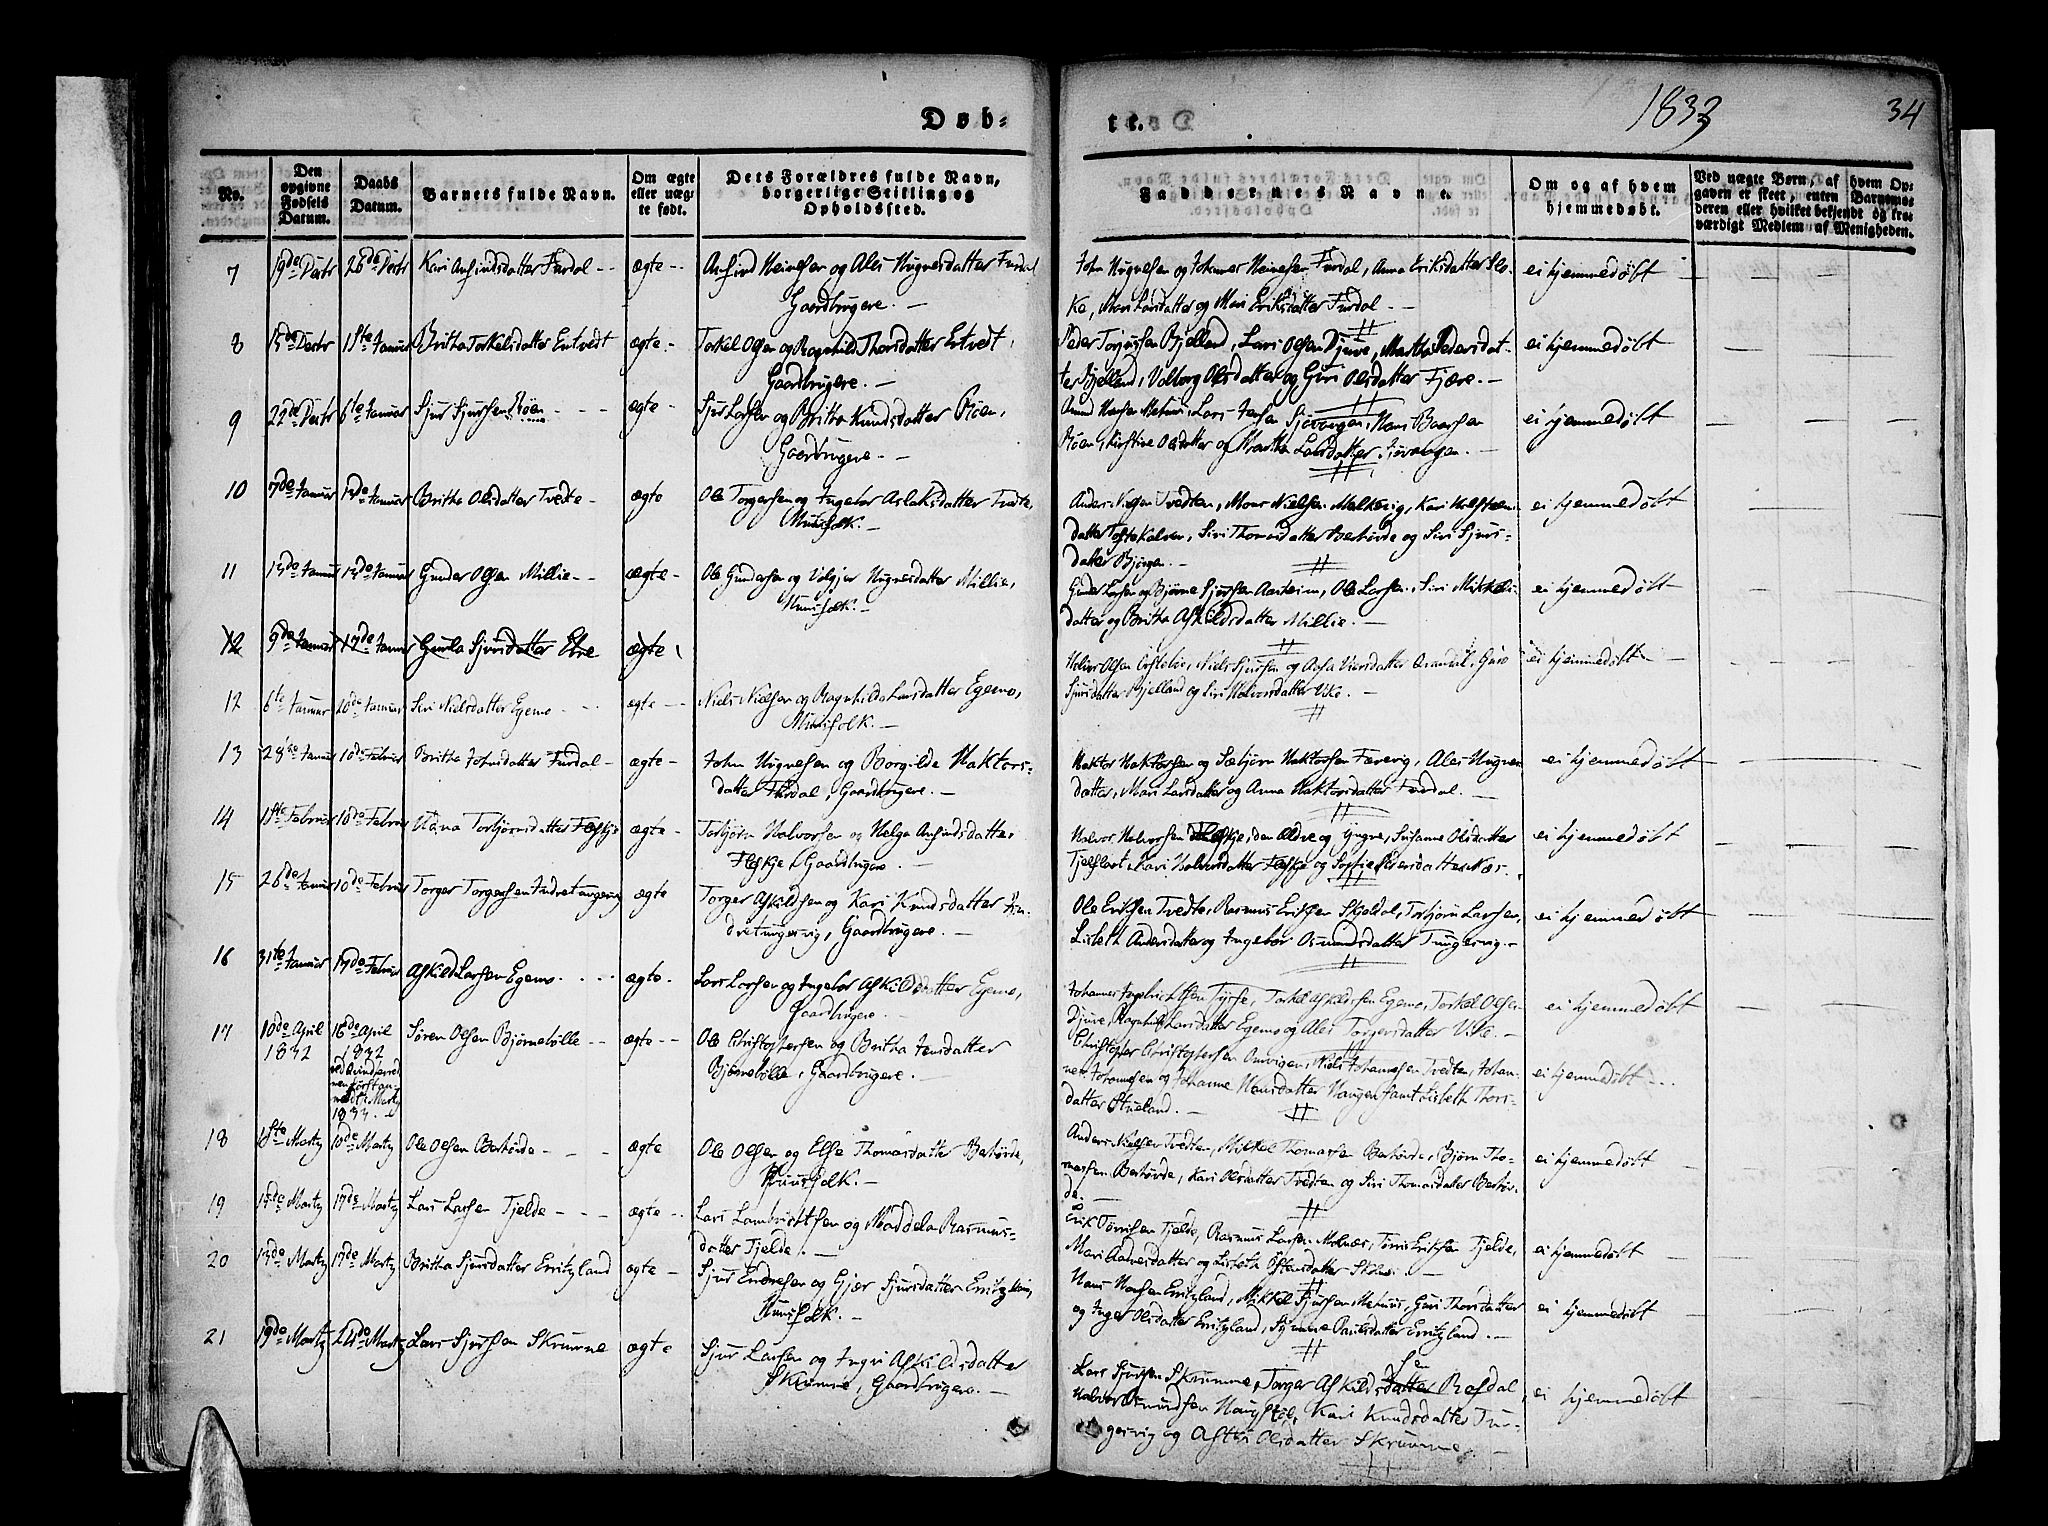 Døb-
te.
1833
34
No.
Den opgivne Fødsels Datum.
Daabs Datum.
Barnets fulde Navn.
Om ægte eller uægte født.
Dets Forældres fulde Navn, borgerlige Stilling og Opholdssted.
Faddernes Navne.
Om og af hvem hjemmedøbt.
Ved uægte Børn, af hvem Opgaven er skeet, enten Barnemoderen eller hvilket bekjendt og troværdigt Medlem af Menigheden.
7
19de Decbr
26de Decbr
Kari Anfindsdatter Furdal
ægte
Anfind Heinesen og Ales Hugnesdatter Furdal
Gaardbrugere.
John Hugnesen og Johannes Heinesen Furdal, Anna Eriksdatter
ke, Mari Larsdatter og Mari Eriksdatter Furdal.
ei hjemmedøbt
8
15de Decbr
1ste Januar
Britha Torkelsdatter Entvedt
ægte
Torkel Olsen og Ragnhild Thorsdatter Entvedt,
Gaardbrugere.
Peder Torjussen Bjelland, Lars Olsen Djuve, Martha Pedersdat-
ter Bjelland, Valborg Olsdatter og Guri Olsdatter Fjære.
ei hjemmedøbt
9
22de Decbr
6te Januar
Sjur Sjursen Røen
ægte
Sjur Larsen og Britha Knudsdatter Røen,
Gaardbrugere.
Lars Jensen Sjøvangen, Hans Baarsen
Røen, Kirstine Olsdatter og Martha Larsdatter Sjøvangen.
ei hjemmedøbt
10
7de Januar
13de Januar
Britha Olsdatter Tvedte
ægte
Ole Torgersen og Ingebor Aslaksdatter Tvedte,
Huusfolk.
Anders Nielsen Tvedten, Mons Nielsen Melkevig, Kari Halsteens-
datter Toftekalven, Siri Thomasdatter Berhovde og Siri Sjurs-
datter Bjørgen.
ei hjemmedøbt
11
13de Januar
13de Januar
Gunder Olsen Millie
ægte
Ole Gundersen og Valgjer Hugnesdatter Millie,
Huusfolk.
Gunder Larsen og Bjørne Sjursen Aarheim, Ole Larsen, Siri Mikkels-
datter og Britha Askildsdatter Millie.
ei hjemmedøbt
12
9de Januar
17de Januar
Gunla Sjursdatter Ebne
ægte
Halvor Olsen Niels Sjursen og Aasa Viersdatter
Sjursdatter Bjelland og Siri Halvorsdatter Vike.
ei hjemmedøbt
12
6te Januar
20de Januar
Siri Nielsdatter Egemo
ægte
Niels Nielsen og Ragnhilda Larsdatter Egemo,
Huusfolk.
13
28de Januar
10de Februar
Britha Johnsdatter Furdal
ægte
John Hugnesen og Borgilde Haktors-
datter Furdal, Gaardbrugere.
Haktor Haktorsen og Sæbjørn Haktorsen Færevig, Ales Hugnes
datter, Mari Larsdatter og Anna Haktorsdatter Furdal.
ei hjemmedøbt
14
1ste Februar
10de Februar
Adna Torbjørnsdatter Fleskje
ægte
Torbjørn Halvorsen og Helga Anfindsdatter
Fleskje, Gaardbrugere.
Halvor Halvorsen Fleskje, den Ældre og Yngre, Susanne Olsdatter
Tjelflaat, Kari Halvorsdatter Fleskje og Sophie Pedersdatter Næs.
ei hjemmedøbt
15
26de Januar
10de Februar
Torger Torgersen Indretungervig
ægte
Torger Askildsen og Kari Knudsdatter In-
dretungervig, Gaardbrugere.
Ole Eriksen Tvedte, Rasmus Eriksen Skjoldal, Torbjørn Larsen,
Lisbeth Andersdatter og Ingebor Osmundsdatter Tungervig.
ei hjemmedøbt
16
31te Januar
17de Februar
Askild Larsen Egemo
ægte
Lars Larsen og Ingebor Askildsdatter Egemo,
Gaardbrugere.
Johannes Ingebrichtsen Tyrse, Torkel Askildsen Egemo, Torkel Olsen
Djuve, Ragnhild Larsdatter Egemo og Ales Torgersdatter Vike.
ei hjemmedøbt
17
10de April
1832
16de April
1832
1833.
Søren Olsen Bjørnebølle
ægte
Ole Christophersen og Britha Jensdatter
Bjørnebølle, Gaardbrugere.
Christopher Christophersen Omvigen, Niels Johannesen Tvedten, Johan-
nes Johannesen og Johanne Hansdatter Haugen samt Lisbeth Thors-
datter Stueland.
ei hjemmedøbt
18
1ste Martz
10de Martz
Ole Olsen Berhovde
ægte
Ole Olsen og Else Thomasdatter Berhovde,
Huusfolk.
Anders Nielsen Tvedten, Mikkel Thomassen Berhovde, Bjørn Tho-
massen Berhovde, Kari Olsdatter Tvedten og Siri Thomasdatter Berhov-
de.
ei hjemmedøbt
19
15de Martz
17de Martz
Lars Larsen Tjelde
ægte
Lars Lambrichtsen og Maddela Rasmus-
datter Tjelde.
Erik Tørrisen Tjelde, Rasmus Larsen Molnæs, Tørris Eriksen Tjelde,
Mari Aadnesdatter og Lisbeth Østensdatter
ei hjemmedøbt
20
13de Martz
17de Martz
Britha Sjursdatter Enitzland
ægte
Sjur Endresen og Gjær Sjursdatter
Huusfolk.
Hans Hansen Enitzland, Mikkel Sjursen Mehuus, Guri Thorsdatter
og Inger Olsdatter Enitzland, Synneve Paulsdatter Enitzland.
ei hjemmedøbt
21
19de Martz
24de Martz
Lars Sjursen Skrumme
ægte
Sjur Larsen og Inga Askildsdatter
Skrumme, Gaardbrugere.
Lars Sjursen Skrumme, Torger Askildsdatter sen Rosdal,
Halvor Osmundsen Haugstøl, Kari Knudsdatter Tun-
gervig og Astri Olsdatter Skrumme.
ei hjemmedøbt